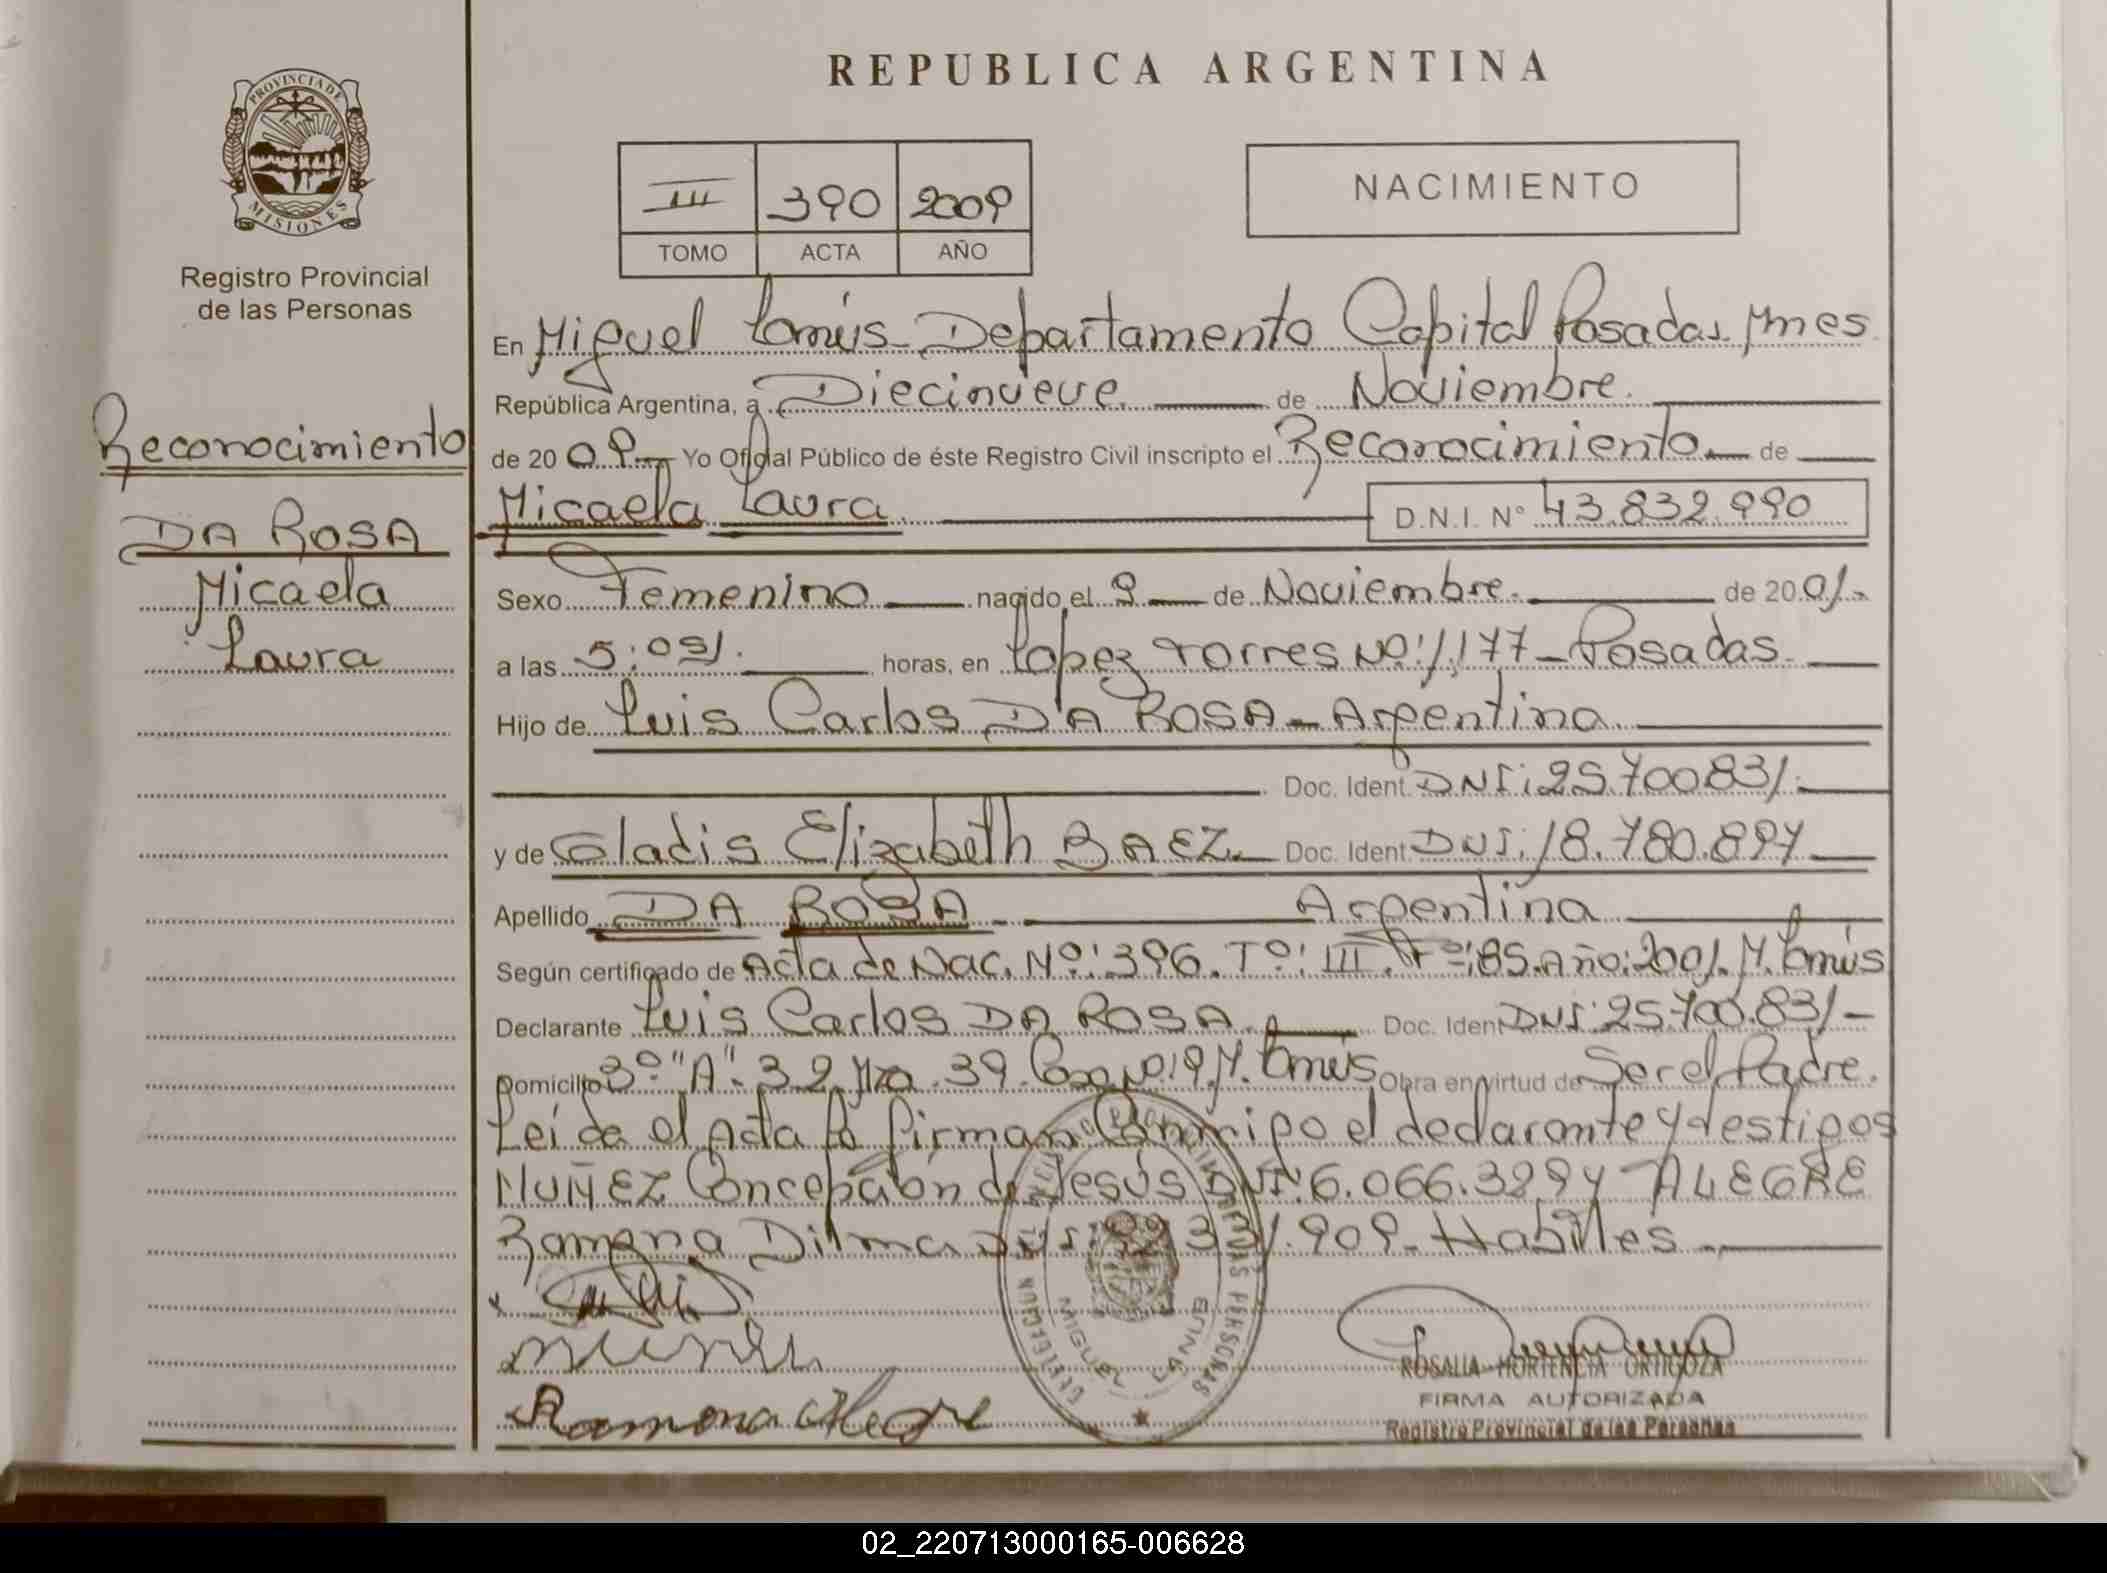 PROVINCIA DE
MISIONES
Registro Provincial
de las Personas
Reconocimiento
DA ROSA
Micaela
Laura
REPUBLICA ARGENTINA
III 390 2009
TOMO ACTA AÑO
NACIMIENTO
En Miguel Lanús - Departamento Capital Posadas. Mnes
República Argentina, a Diecinueve. de Noviembre.
de 2009 - Yo Oficial Público de éste Registro Civil inscripto el Reconocimiento de
Micaela Laura D.N.I. N° 43.832.990
Sexo Femenino nacido el 9 de Noviembre. de 2001.-
a las 5:05/. horas, en Lopez Torres Nº:1.177 - Posadas.
Hijo de Luis Carlos DA ROSA - Argentina.
Doc. Ident. DNI: 25.700.831.
y de Gladis Elizabeth BAEZ. Doc. Ident. DNI: 18.780.897
Apellido DA ROSA - Argentina
Según certificado de Acta de Nac. Nº: 396. Tº: III. Fº: 185. Año: 2001. M. Lanús
Declarante Luis Carlos DA ROSA. Doc. Iden DNI: 25.700.831 -
Domicilio 3º "A". 32 Mza. 39. Casa Nº: 9. M. Lanús Obra en virtud de Ser el Padre.
Leída el Acta la firman Conmigo el declarante y testigos
NUÑEZ Concepción de Jesús DNI: 6.066.329 y ALEGRE
Ramona Dilma DNI: 331.909 - Habiles.
Ramona Alegre
MIGUEL LANUS
ROSALIA HORTENCIA ORTIGOZA
FIRMA AUTORIZADA
Registro Provincial de las Personas
02_220713000165-006628